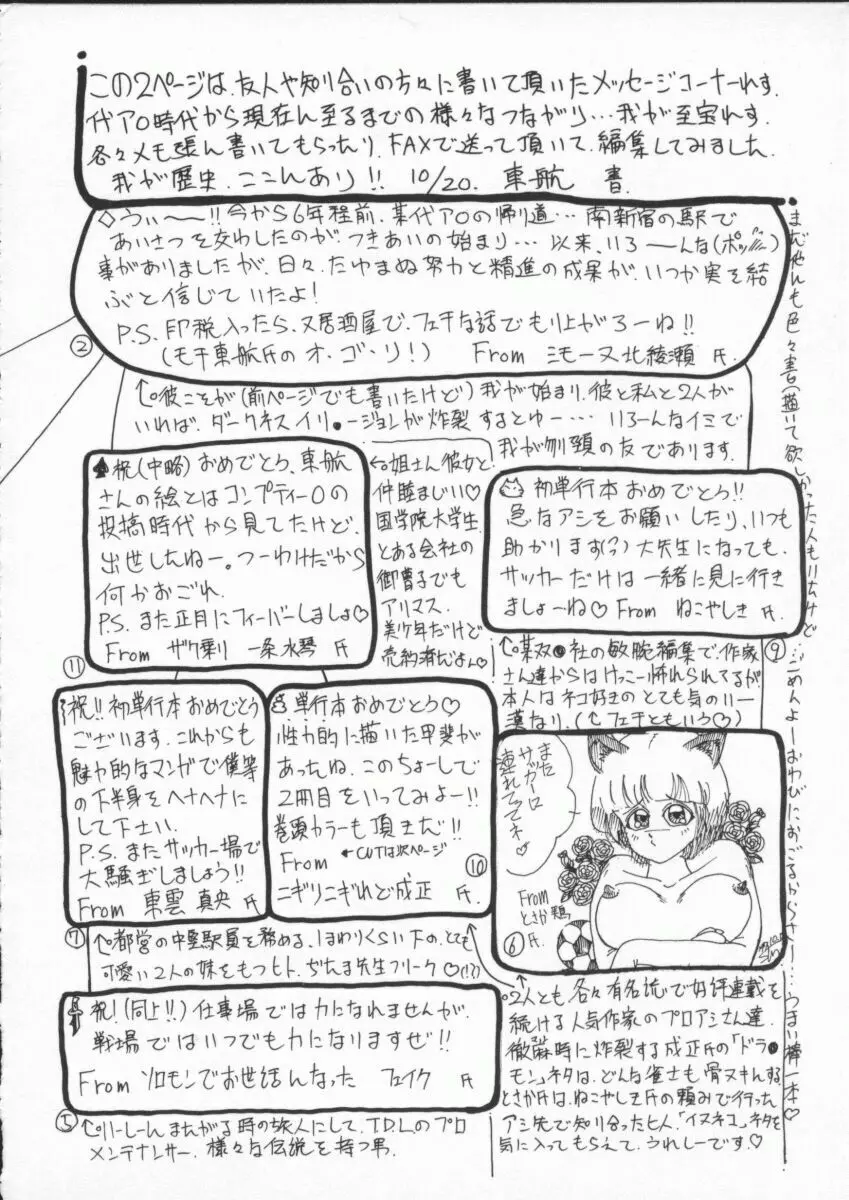 この2ページは、友人や知り合いの方々に書いて頂いたメッセージコーナーれす.
代アO時代から現在ん至るまでの様々なつながり…我が至宝れす.
各々メモ張ん書いてもらったり、FAXで送って頂いて、編集してみました.
我が歴史、ここんあり!! 10/20. 東航 書.
◇うぃ〜〜!!今から6年程前、某代アOの帰り道…南新宿の駅で
あいさつを交わしたのが、つきあいの始まり…以来、いろーーんな(ポッ)
事がありましたが、日々、たゆまぬ努力と精進の成果が、いつか実を結
ぶと信じていたよ!
P.S. 印税入ったら、又居酒屋で、フェチな話でもり上がろーね!!
(モチ東航氏のオ・ゴ・リ!) From ミモーヌ北綾瀬 氏.
②
↑○彼こそが(前ページでも書いたけど)我が始まり、彼と私と2人が
いれば、ダークネスイリ●ージョンが炸裂するとゆー…いろーんなイミで
我が刎頸の友であります.
♠祝(中略)おめでとう、東航
さんの絵とはコンプティーOの
投稿時代から見てたけど、
出世したねー。つーわけだから
何かおごれ.
P.S. また正月にフィーバーしましょ♡
From ザク乗り 一条水琴 氏
⑪
←○姐さん彼女と
仲睦まじい♡
国学院大学生.
とある会社の
御曹子でも
アリマス.
美少年だけど
売約済だよん♡
初単行本おめでとう!!
急なアシをお願いしたり、いつも
助かります(?)大先生になっても、
サッカーだけは一緒に見に行き
ましょーね♡ From ねこやしき 氏.
⑨
↑○某双●社の敏腕編集で、作家
さん達からはけっこー怖れられてるが
本人はネコ好きのとても気のいー
漢なり.(↑フェチともいう♡)
祝!!初単行本おめでとう
ございます.これからも
魅力的なマンガで僕等
の下半身をヘナヘナに
して下さい.
P.S. またサッカー場で
大騒ぎしましょう!!
From 東雲 真央 氏
⑦
単行本おめでとう♡
性力的に描いた甲斐が
あったね、このちょーしで
2冊目をいってみよー!!
巻頭カラーも頂きだ!!
From ←CUTは次ページ
ニギリニギれど成正 氏.
⑩
また
サッカーに
連れてってネ♡
From
とさか鶏
氏.
⑥
↑○都営の中堅駅員を務める、1まわりくらい下の、とても
可愛い2人の妹をもつヒト、ぢたま先生フリーク♡(!?)
祝!(同上!!)仕事場では力になれませんが、
戦場ではいつでも力になりますぜ!!
From ソロモンでお世話んなった フェイク 氏
⑤
↑○りーしーんまんがる時の旅人にして、T.D.L.のプロ
メンテナンサー. 様々な伝説を持つ男.
↑○2人とも、各々有名誌で好評連載を
続ける人気作家のプロアシさん達.
徹麻時に炸裂する成正氏の「ドラ●
モン」ネタは、どんな雀士も骨ヌキんする.
とさか氏は、ねこやしき氏の頼みで行った
アシ先で知り合ったヒト.「イヌネコ」ネタを
気に入ってもらえて、うれしーです.♡
まだやんも色々書(描)いて欲しかった人もいるけど…ごめんよーおわびにおごるからさー…うまい棒一本♡